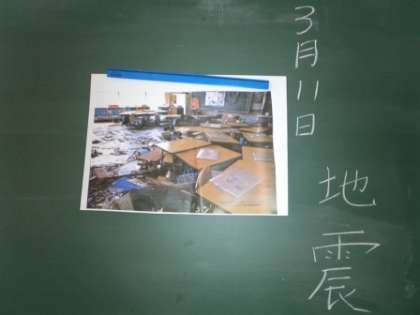 3月11日
地震